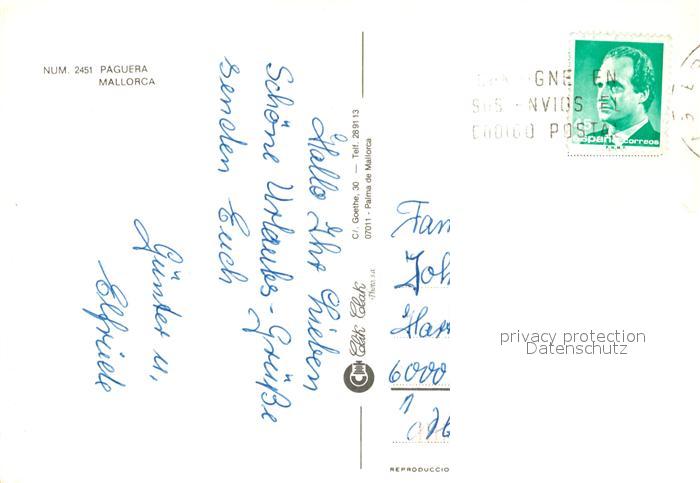 NUM. 2451 PAGUERA
MALLORCA
Hallo Ihr Lieben
Schöne Urlaubs-Grüße
senden Euch
Günter u.
Elfriede
C/. Goethe, 30 — Telf. 289113
07011 - Palma de Mallorca
Clik Clak
CONSIGNE EN
SUS ENVIOS EL
CODIGO POSTAL
España correos
Fam
Joh
6000
privacy protection
Datenschutz
REPRODUCCIO